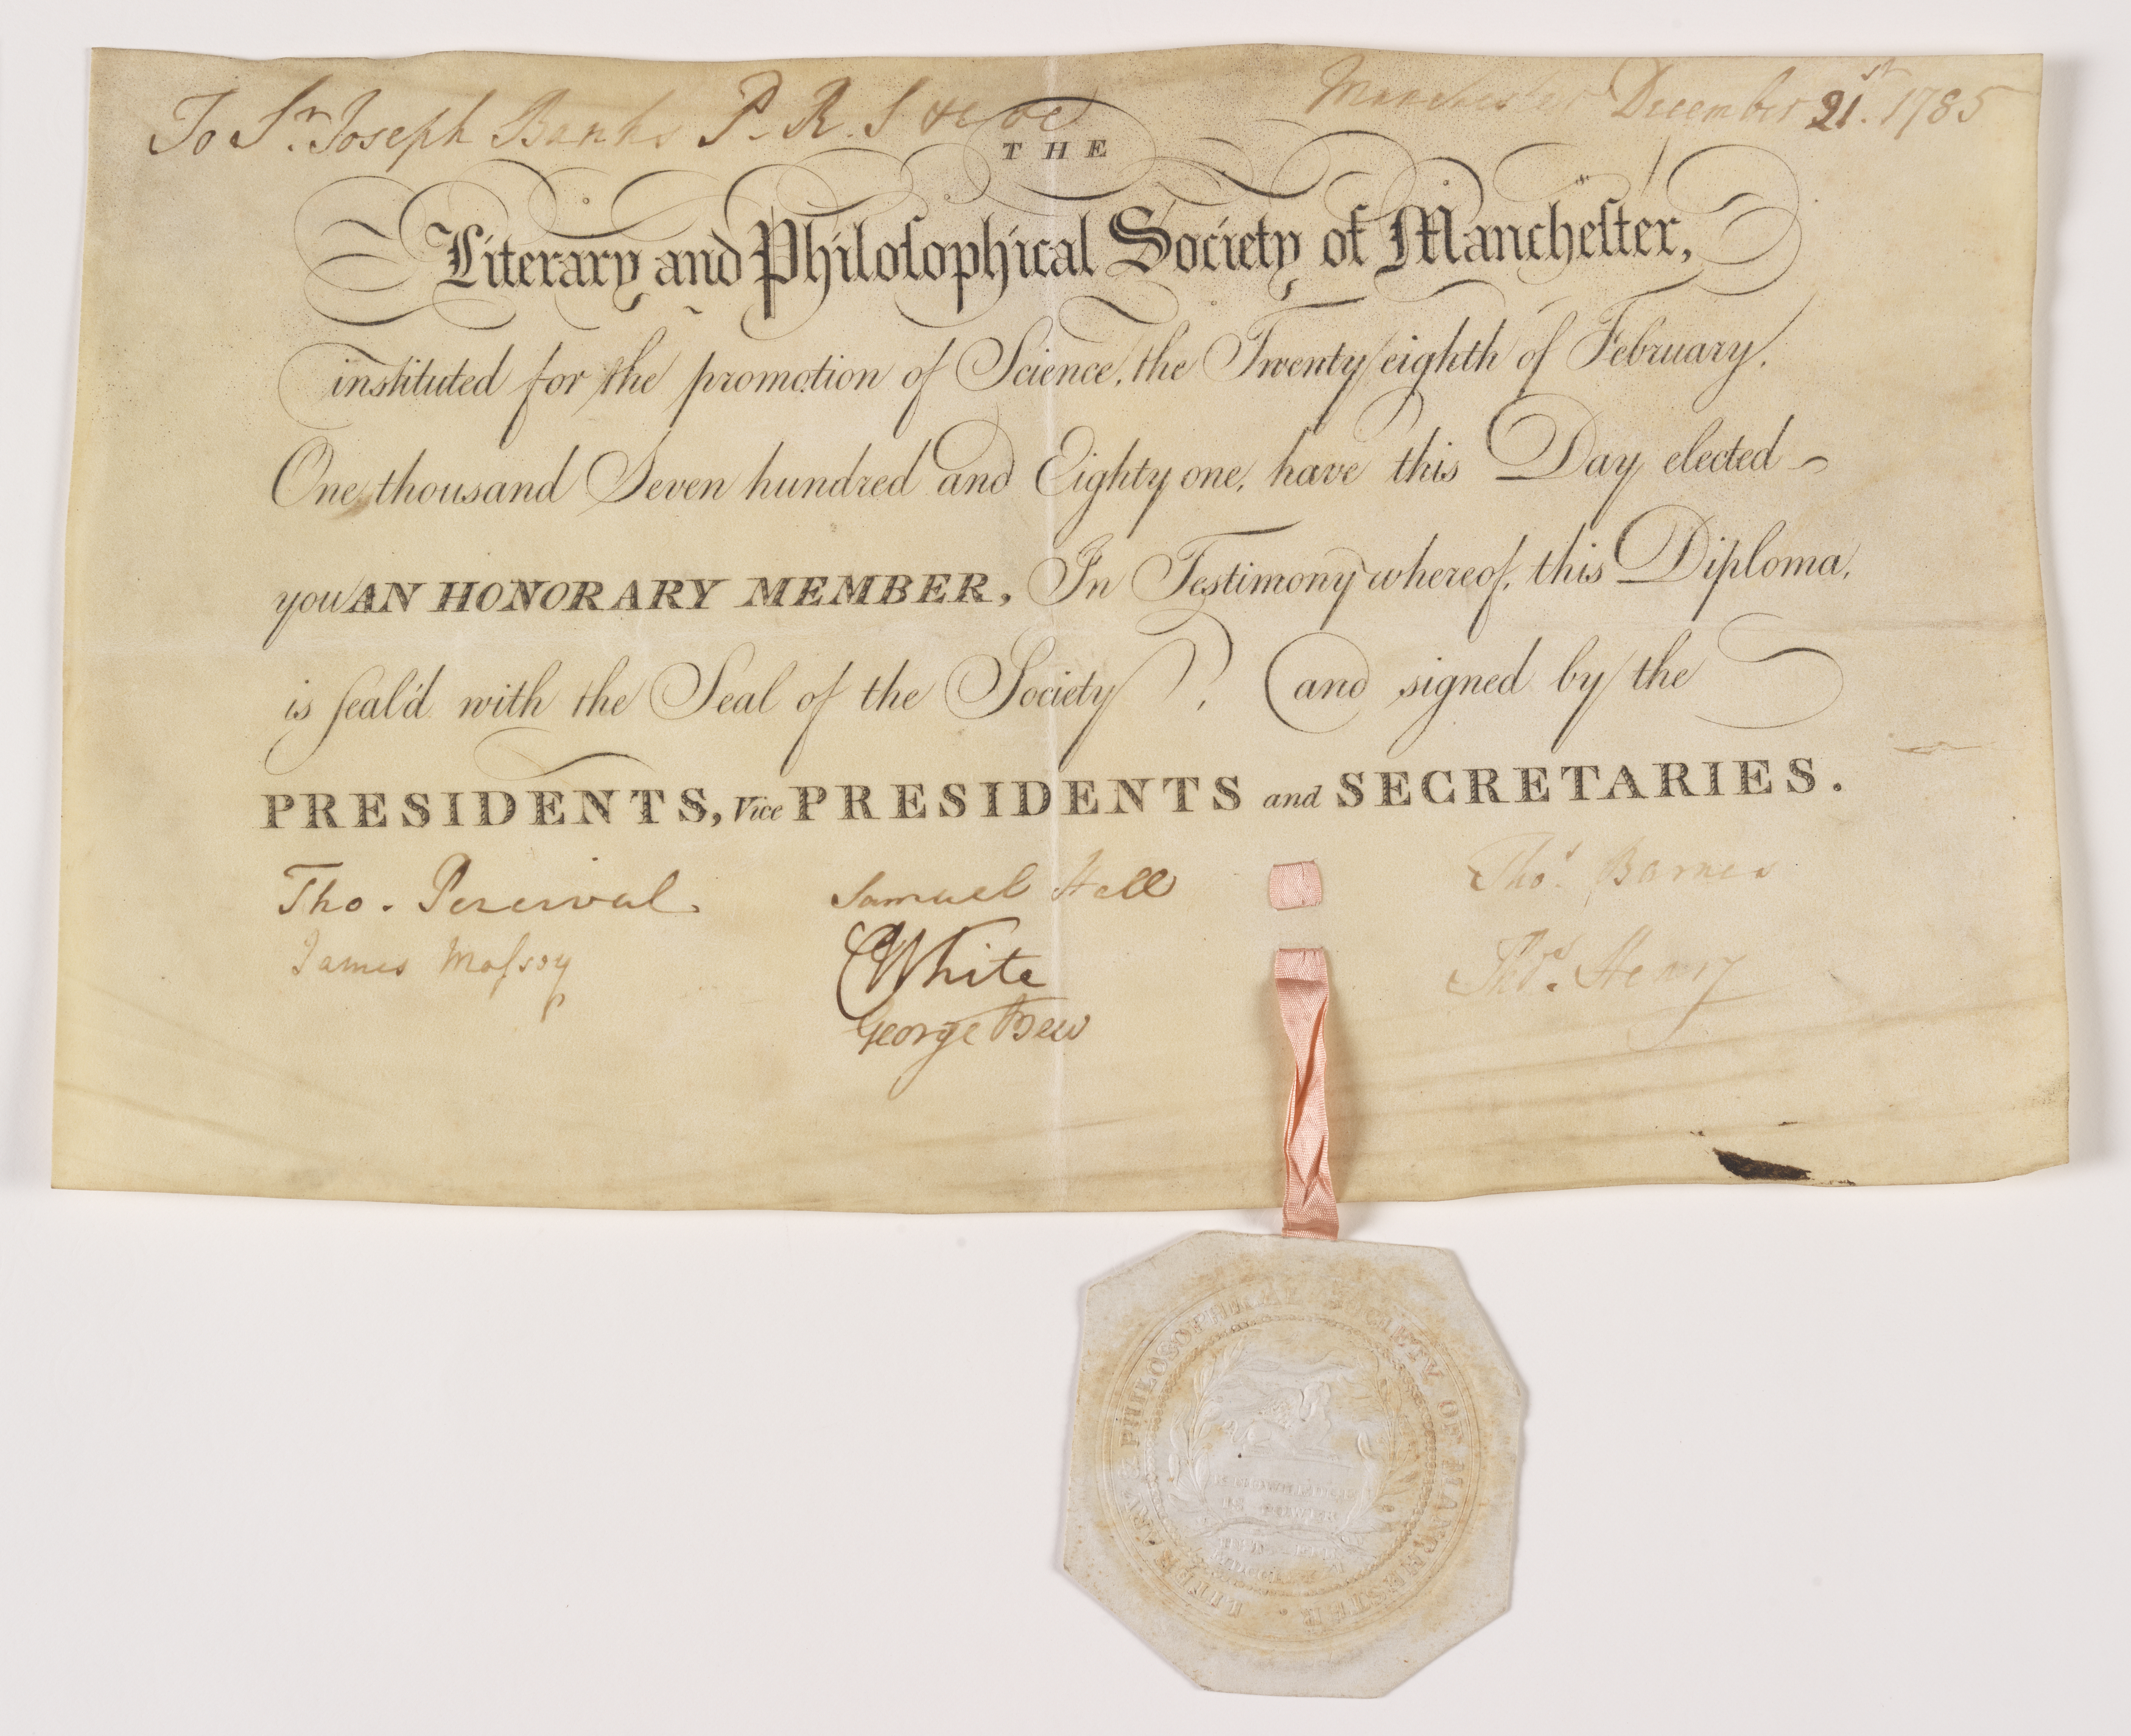 To Sr. Joseph Banks P. R. S &c &c
Manchester December 21st. 1785
THE
Literary and Philoſophical Society of Mancheſter,
instituted for the promotion of Science, the Twenty eighth of February,
One thousand Seven hundred and Eighty one, have this Day elected
you AN HONORARY MEMBER, In Testimony whereof, this Diploma,
is ſeal'd with the Seal of the Society, and signed by the
PRESIDENTS, Vice PRESIDENTS and SECRETARIES.
Tho. Percival. Samuel Hall Thos. Barnes
James Maſsey CWhite Thos. Henry
George Bew
LITERARY & PHILOSOPHICAL SOCIETY OF MANCHESTER.
KNOWLEDGE
IS POWER